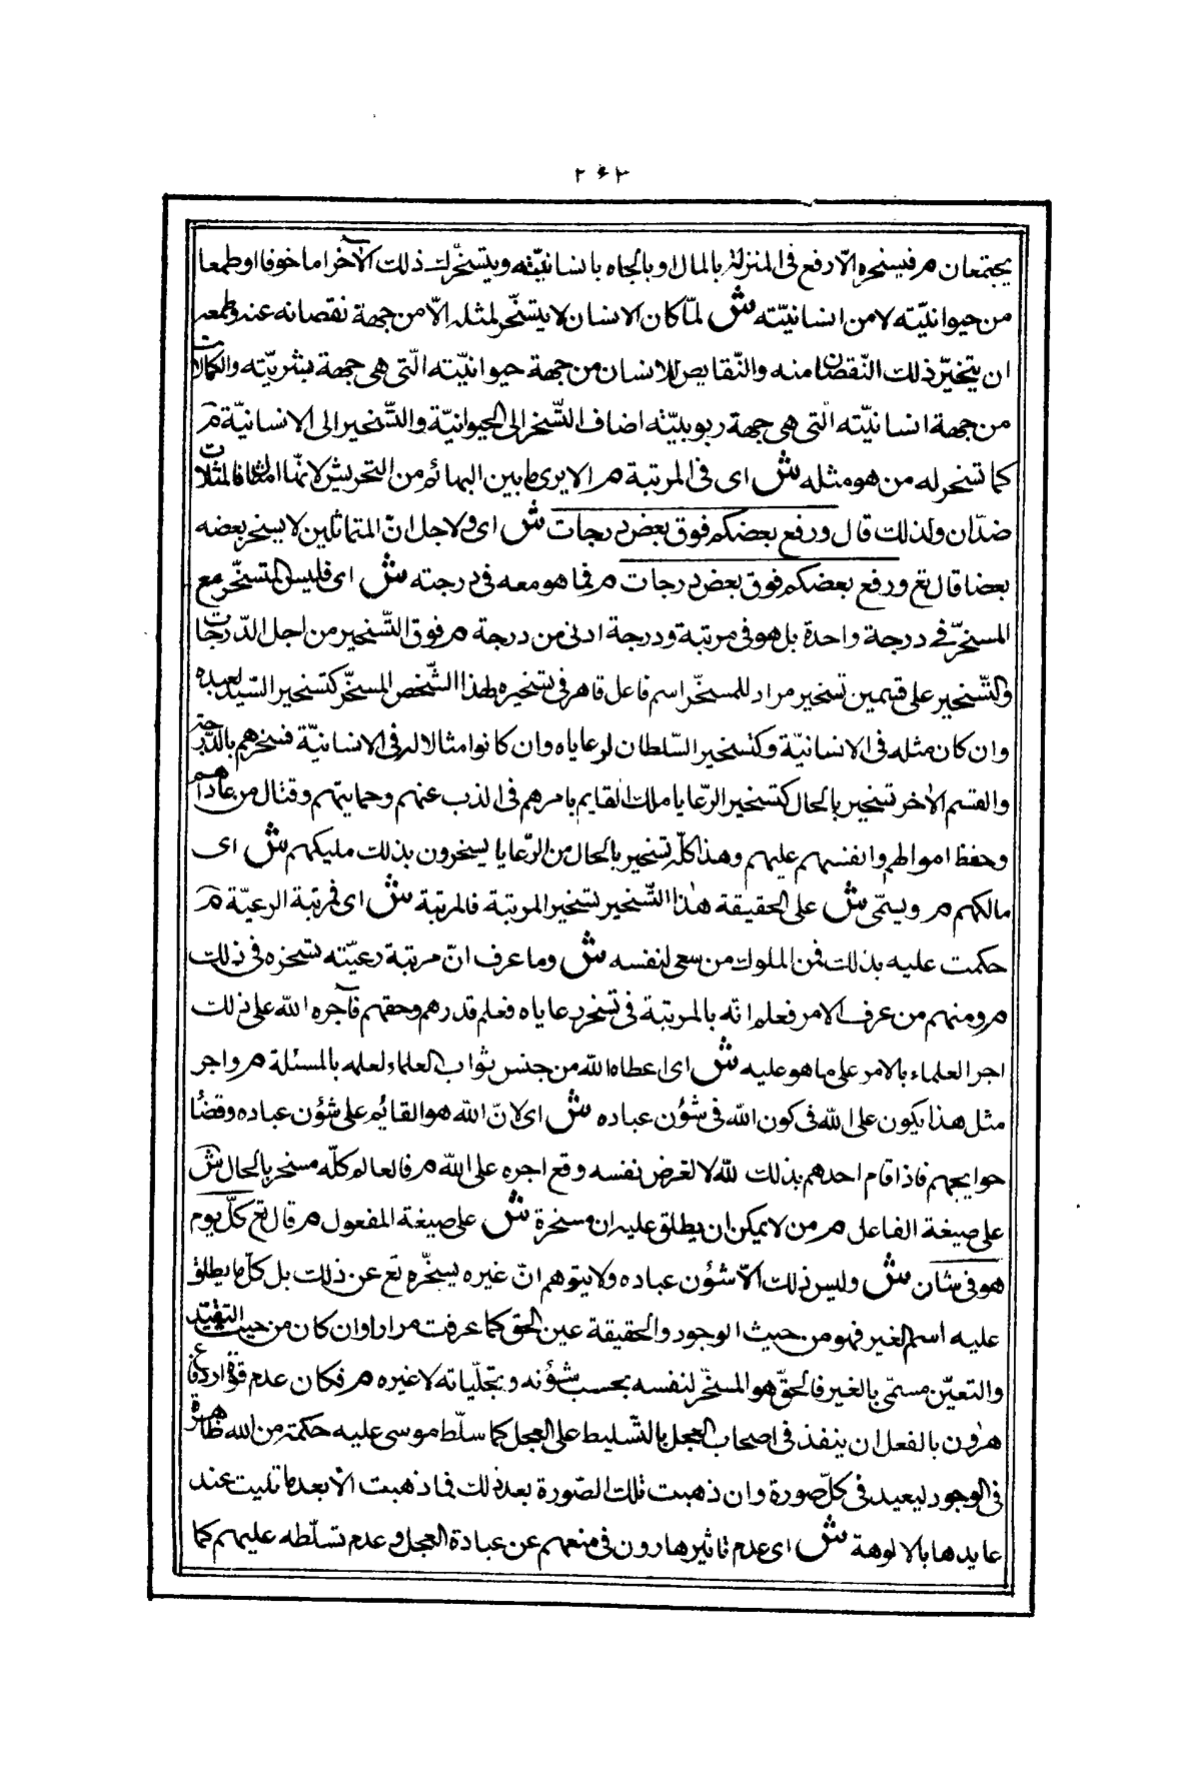 ٢٤٣
يجتمعان م فيسخره الارفع فى المنزلة بالمال او بالجاه بانسانيّته ويتسخّر له ذلك الآخر اما خوفا او طمعا
من حيوانيّته لا من انسانيّته ش لمّا كان الانسان لا يتسخّر لمثله الّا من جهة نقصانه عنه وطمعه
ان ينجبر ذلك النّقصان منه والنّقايص للانسان من جهة حيوانيّته الّتى هى جهة بشريّته والكمالات
من جهة انسانيّته الّتى هى جهة ربوبيّته اضاف التّسخر الى الحيوانيّة والتّسخير الى الانسانيّة م
كما تسخر له من هو مثله ش اى فى المرتبة م الا يرى ما بين البهائم من التحريش لانّها امثال فالمثلان
ضدّان ولذلك قال ورفع بعضكم فوق بعض درجات ش اى ولاجل انّ المتماثلين لا يسخر بعضه
بعضا قال تع ورفع بعضكم فوق بعض درجات م فما هو معه فى درجته ش اى فليس المتسخّر مع
المسخّر فى درجة واحدة بل هو فى مرتبة ودرجة ادنى من درجة م فوق التّسخير من اجل الدّرجات
والتّسخير على قسمين تسخير مراد للمسخّر اسم فاعل قاهر فى تسخيره لهذا الشّخص المسخّر كتسخير السّيّد لعبده
وان كان مثله فى الانسانيّة وكتسخير السّلطان لرعاياه وان كانوا امثالا له فى الانسانيّة فسخرهم بالدّرجة
والقسم الآخر تسخير بالحال كتسخير الرّعايا ملك القايم بامرهم فى الذب عنهم وحمايتهم وقتال من عاداهم
وحفظ اموالهم وانفسهم عليهم وهذا كلّه تسخير بالحال من الرّعايا يسخرون بذلك مليكهم ش اى
مالكهم م ويسمّى ش على الحقيقة هذا التّسخير تسخير المرتبة فالمرتبة ش اى فمرتبة الرعيّة م
حكمت عليه بذلك فمن الملوك من سعى لنفسه ش وما عرف انّ مرتبة رعيّته تسخره فى ذلك
م ومنهم من عرف الامر فعلم انّه بالمرتبة فى تسخر رعاياه فعلم قدرهم وحقهم فآجره الله على ذلك
اجر العلماء بالامر على ما هو عليه ش اى اعطاه الله من جنس ثواب العلماء لعلمه بالمسئلة م واجر
مثل هذا يكون على الله فى كون الله فى شؤن عباده ش اى لانّ الله هو القايم على شؤن عباده وقضا
حوايجهم فاذا قام احدهم بذلك لله لا لغرض نفسه وقع اجره على الله م فالعالم كلّه مسخر بالحال ش
على صيغة الفاعل م من لا يمكن ان يطلق عليه انه مسخرة ش على صيغة المفعول م قال تع كلّ يوم
هو فى شان ش وليس ذلك الّا شؤن عباده ولا يتوهم انّ غيره يسخّره تع عن ذلك بل كلّ ما يطلق
عليه اسم الغير فهو من حيث الوجود والحقيقة عين الحق كما عرفت مرارا وان كان من حيث التقيّد
والتعيّن مسمّى بالغير فالحقّ هو المسخّر لنفسه بحسب شؤنه وتجلّياته لا غيره م فكان عدم قوّة ارداع
هٰرون بالفعل ان ينفذ فى اصحاب العجل بالتّسليط على العجل كما سلّط موسى عليه حكمة من الله ظاهرة
فى الوجود ليعبد فى كلّ صورة وان ذهبت تلك الصّورة بعد ذلك فما ذهبت الّا بعد ما تلبست عند
عابدها بالالوهة ش اى عدم تاثير هارون فى منعهم عن عبادة العجل وعدم تسلّطه عليهم كما